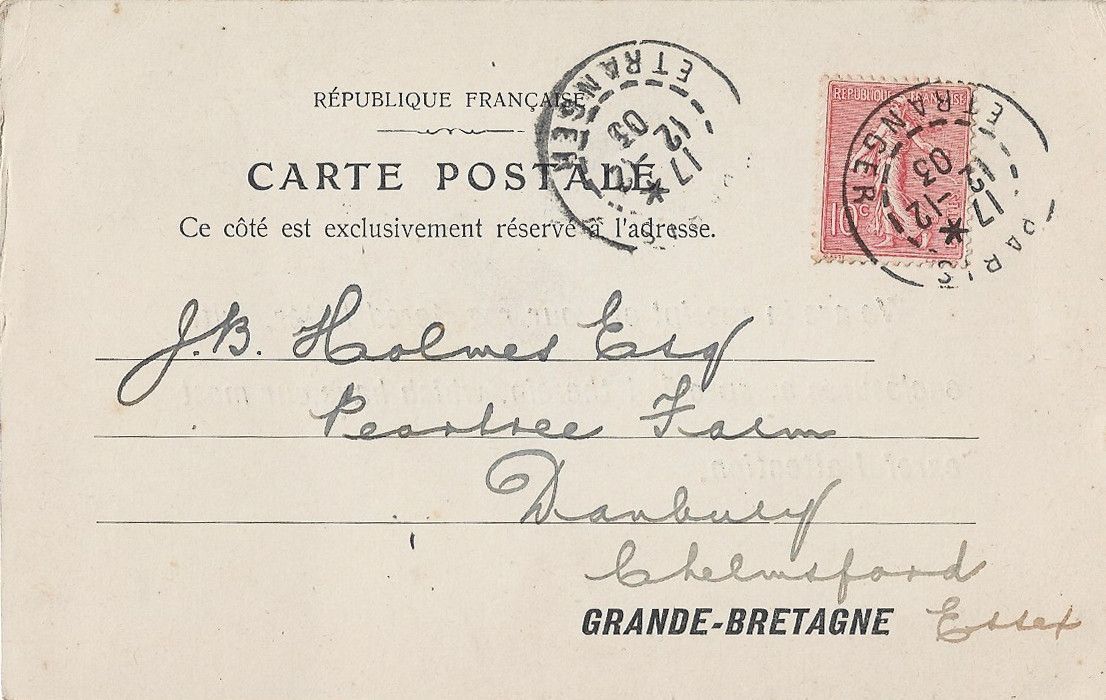 RÉPUBLIQUE FRANÇAISE
CARTE POSTALE
Ce côté est exclusivement réservé à l'adresse.
ETRANGER
17
12
03
RÉPUBLIQUE FRANÇAISE
10c
PARIS ETRANGER
17
12
03
J.B. Holmes Esq
Peartree Farm
Danbury
Chelmsford
GRANDE-BRETAGNE Essex